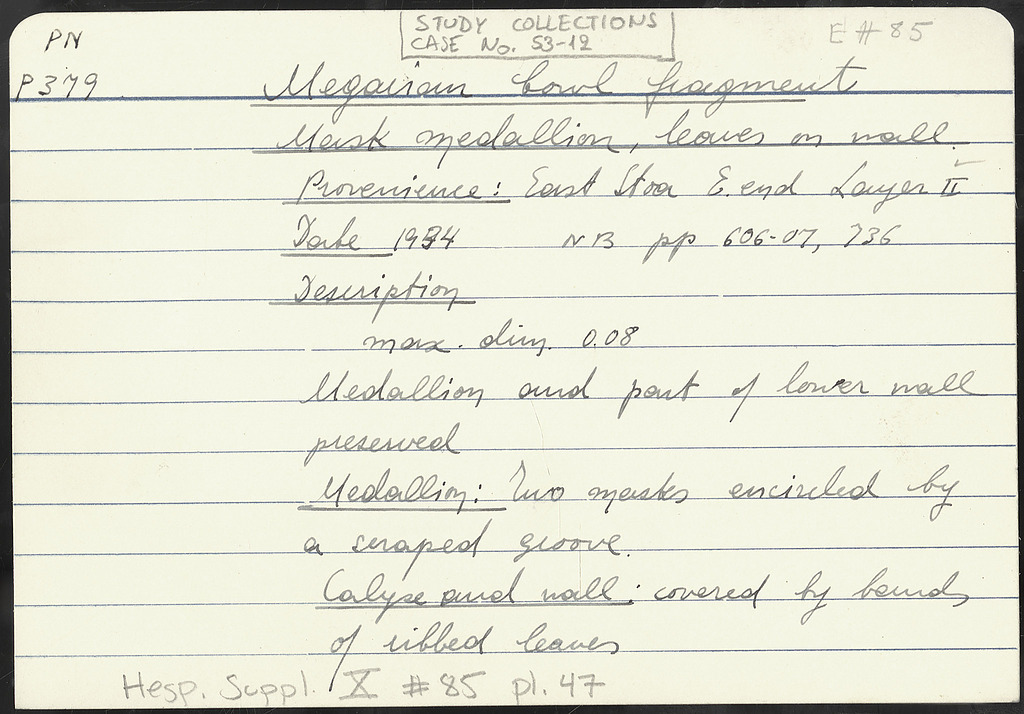 STUDY COLLECTIONS
CASE No. S3-12
E # 85
PN
P379
Megarian bowl fragment
Mask medallion, leaves on wall.
Provenience: East Stoa E. end Layer II
Date 1934 NB pp 606-07, 736
Description
max. dim. 0.08
Medallion and part of lower wall
preserved
Medallion: Two masks encircled by
a scraped groove.
Calyx and wall: covered by bands
of ribbed leaves
Hesp. Suppl. X # 85 pl. 47